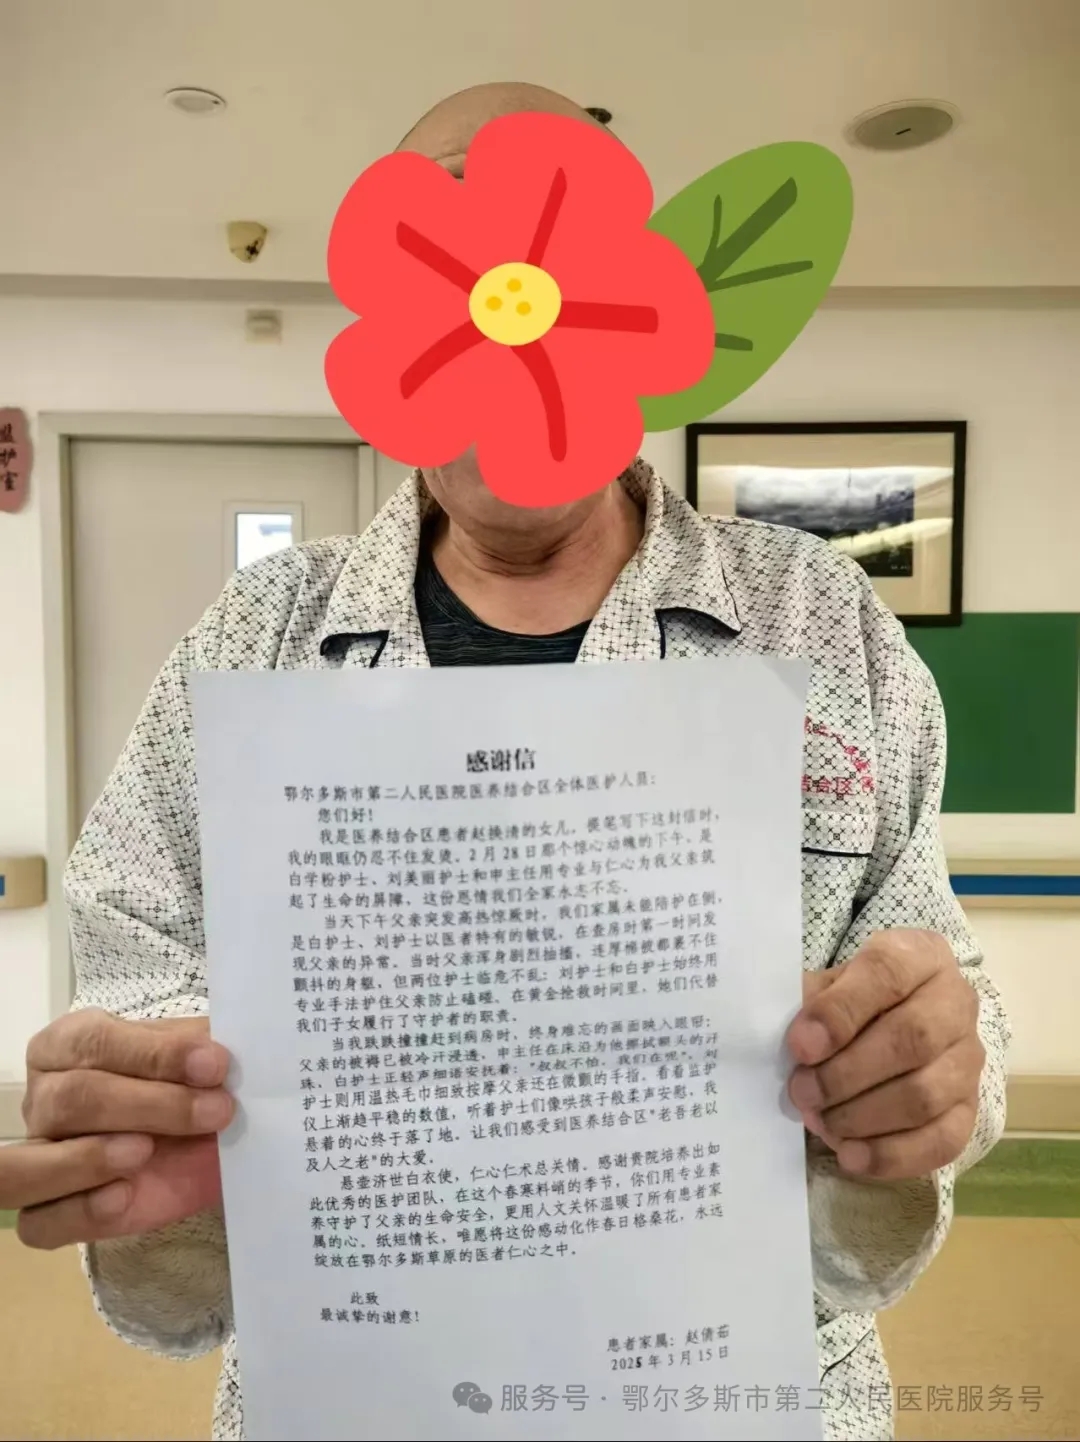 监护室
感谢信
鄂尔多斯市第二人民医院医养结合区全体医护人员：
您们好！
我是医养结合区患者赵换清的女儿，提笔写下这封信时，
我的眼眶仍忍不住发烫。2月28日那个惊心动魄的下午，是
白学粉护士、刘美丽护士和申主任用专业与仁心为我父亲筑
起了生命的屏障，这份恩情我们全家永志不忘。
当天下午父亲突发高热惊厥时，我们家属未能陪护在侧，
是白护士、刘护士以医者特有的敏锐，在查房时第一时间发
现父亲的异常。当时父亲浑身剧烈抽搐，连厚棉被都裹不住
颤抖的身躯，但两位护士临危不乱：刘护士和白护士始终用
专业手法护住父亲防止磕碰。在黄金抢救时间里，她们代替
我们子女履行了守护者的职责。
当我跌跌撞撞赶到病房时，终身难忘的画面映入眼帘：
父亲的被褥已被冷汗浸透，申主任在床沿为他擦拭额头的汗
珠，白护士正轻声细语安抚着："叔叔不怕，我们在呢"，刘
护士则用温热毛巾细致按摩父亲还在微颤的手指。看着监护
仪上渐趋平稳的数值，听着护士们像哄孩子般柔声安慰，我
悬着的心终于落了地。让我们感受到医养结合区"老吾老以
及人之老"的大爱。
悬壶济世白衣使，仁心仁术总关情。感谢贵院培养出如
此优秀的医护团队，在这个春寒料峭的季节，你们用专业素
养守护了父亲的生命安全，更用人文关怀温暖了所有患者家
属的心。纸短情长，唯愿将这份感动化作春日格桑花，永远
绽放在鄂尔多斯草原的医者仁心之中。
此致
最诚挚的谢意！
患者家属：赵倩茹
2025年3月15日
结合区
服务号·鄂尔多斯市第二人民医院服务号